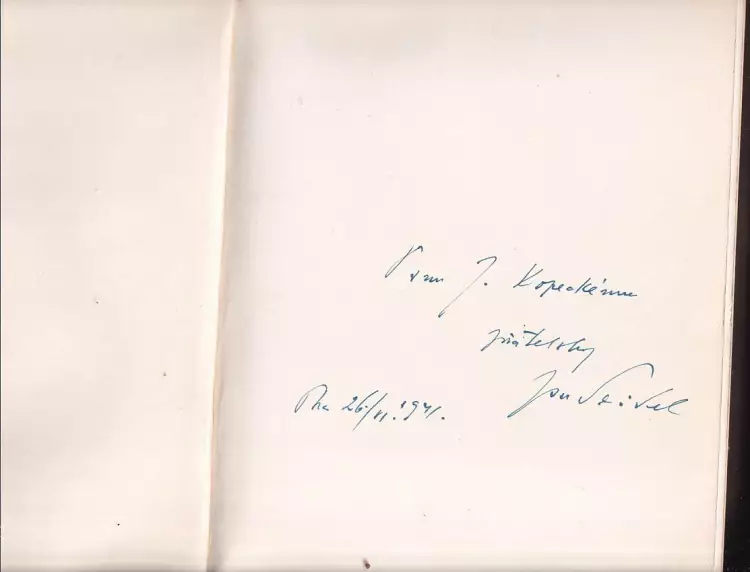 Panu J. Kopeckému
přátelsky
Jan Seidel
Pha 26/VI. 1941.